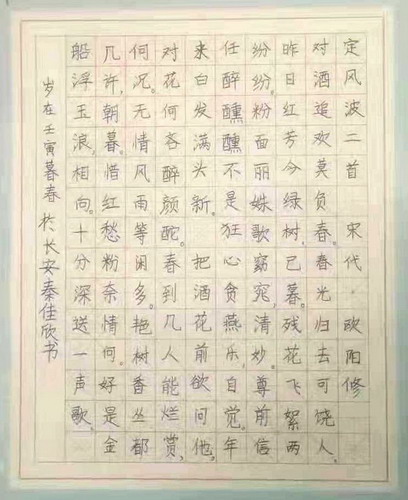 定风波二首 宋代·欧阳修
对酒追欢莫负春。春光归去可饶人,
昨日红芳今绿树,已暮。残花飞絮两
纷纷。粉面丽姝歌窈窕,清妙。尊前信
任醉醺醺。不是狂心贪燕乐,自觉。年
来白发满头新。把酒花前欲问他,
对花何吝醉颜酡。春到几人能烂赏,
何况。无情风雨等闲多。艳树香丛都
几许,朝暮。惜红愁粉奈情何。好是金
船浮玉浪,相向。十分深送一声歌。
岁在壬寅暮春於长安秦佳欣书